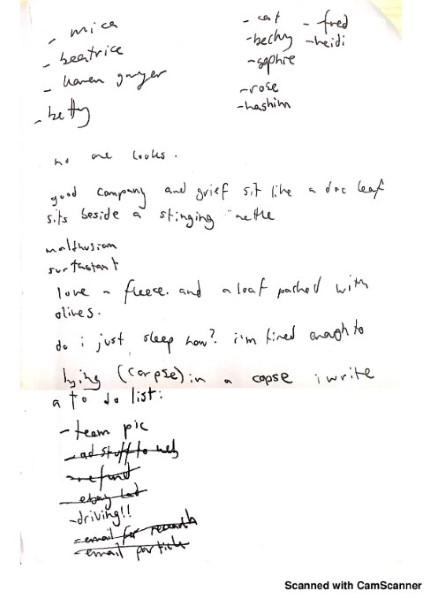 - mica
- beatrice
- betty
- cat
- becky
- sophie
- rose
- hashim
- fred
- heidi
no one looks.
good company and grief sit like a doc leaf
sits beside a stinging nettle
malthusian
surfactant
love a fleece. and a loaf packed with
olives.
do i just sleep now? i'm tired enough to
lying (corpse) in a copse i write
a to do list:
- team pic
- ad stuff to
- refund
- ebay
- driving!!
- email for
- email
Scanned with CamScanner